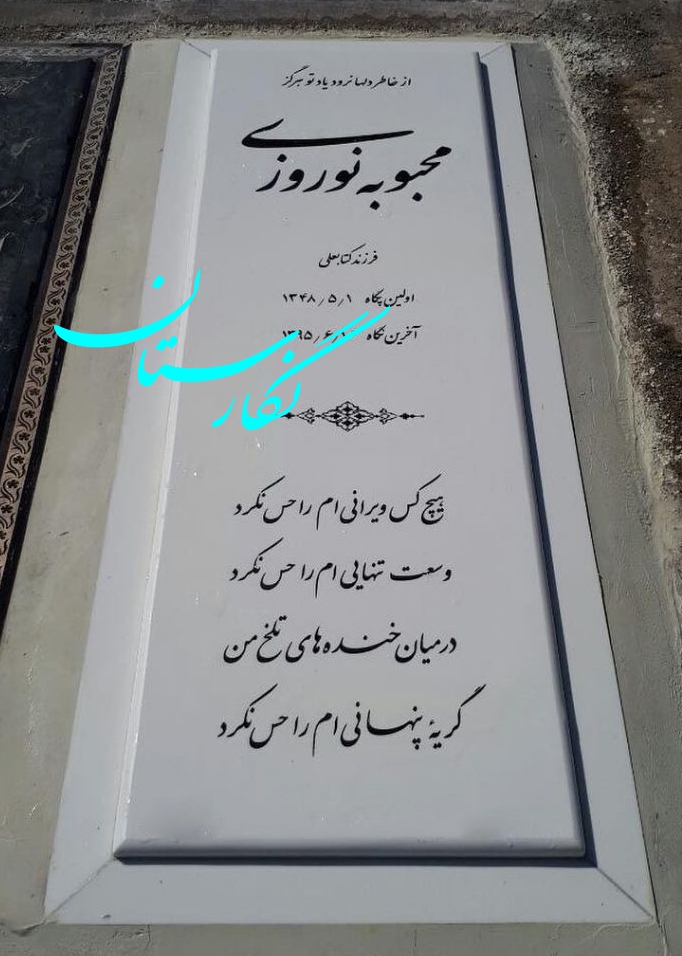 از خاطر دلها نرود یاد تو هرگز
محبوبه نوروزی
فرزند کتابعلی
اولین پگاه ۱۳۴۸/۵/۱
آخرین نگاه
نگارستان
هیچ کس ویرانی ام را حس نکرد
وسعت تنهایی ام را حس نکرد
در میان خنده های تلخ من
گریۀ پنهانی ام را حس نکرد